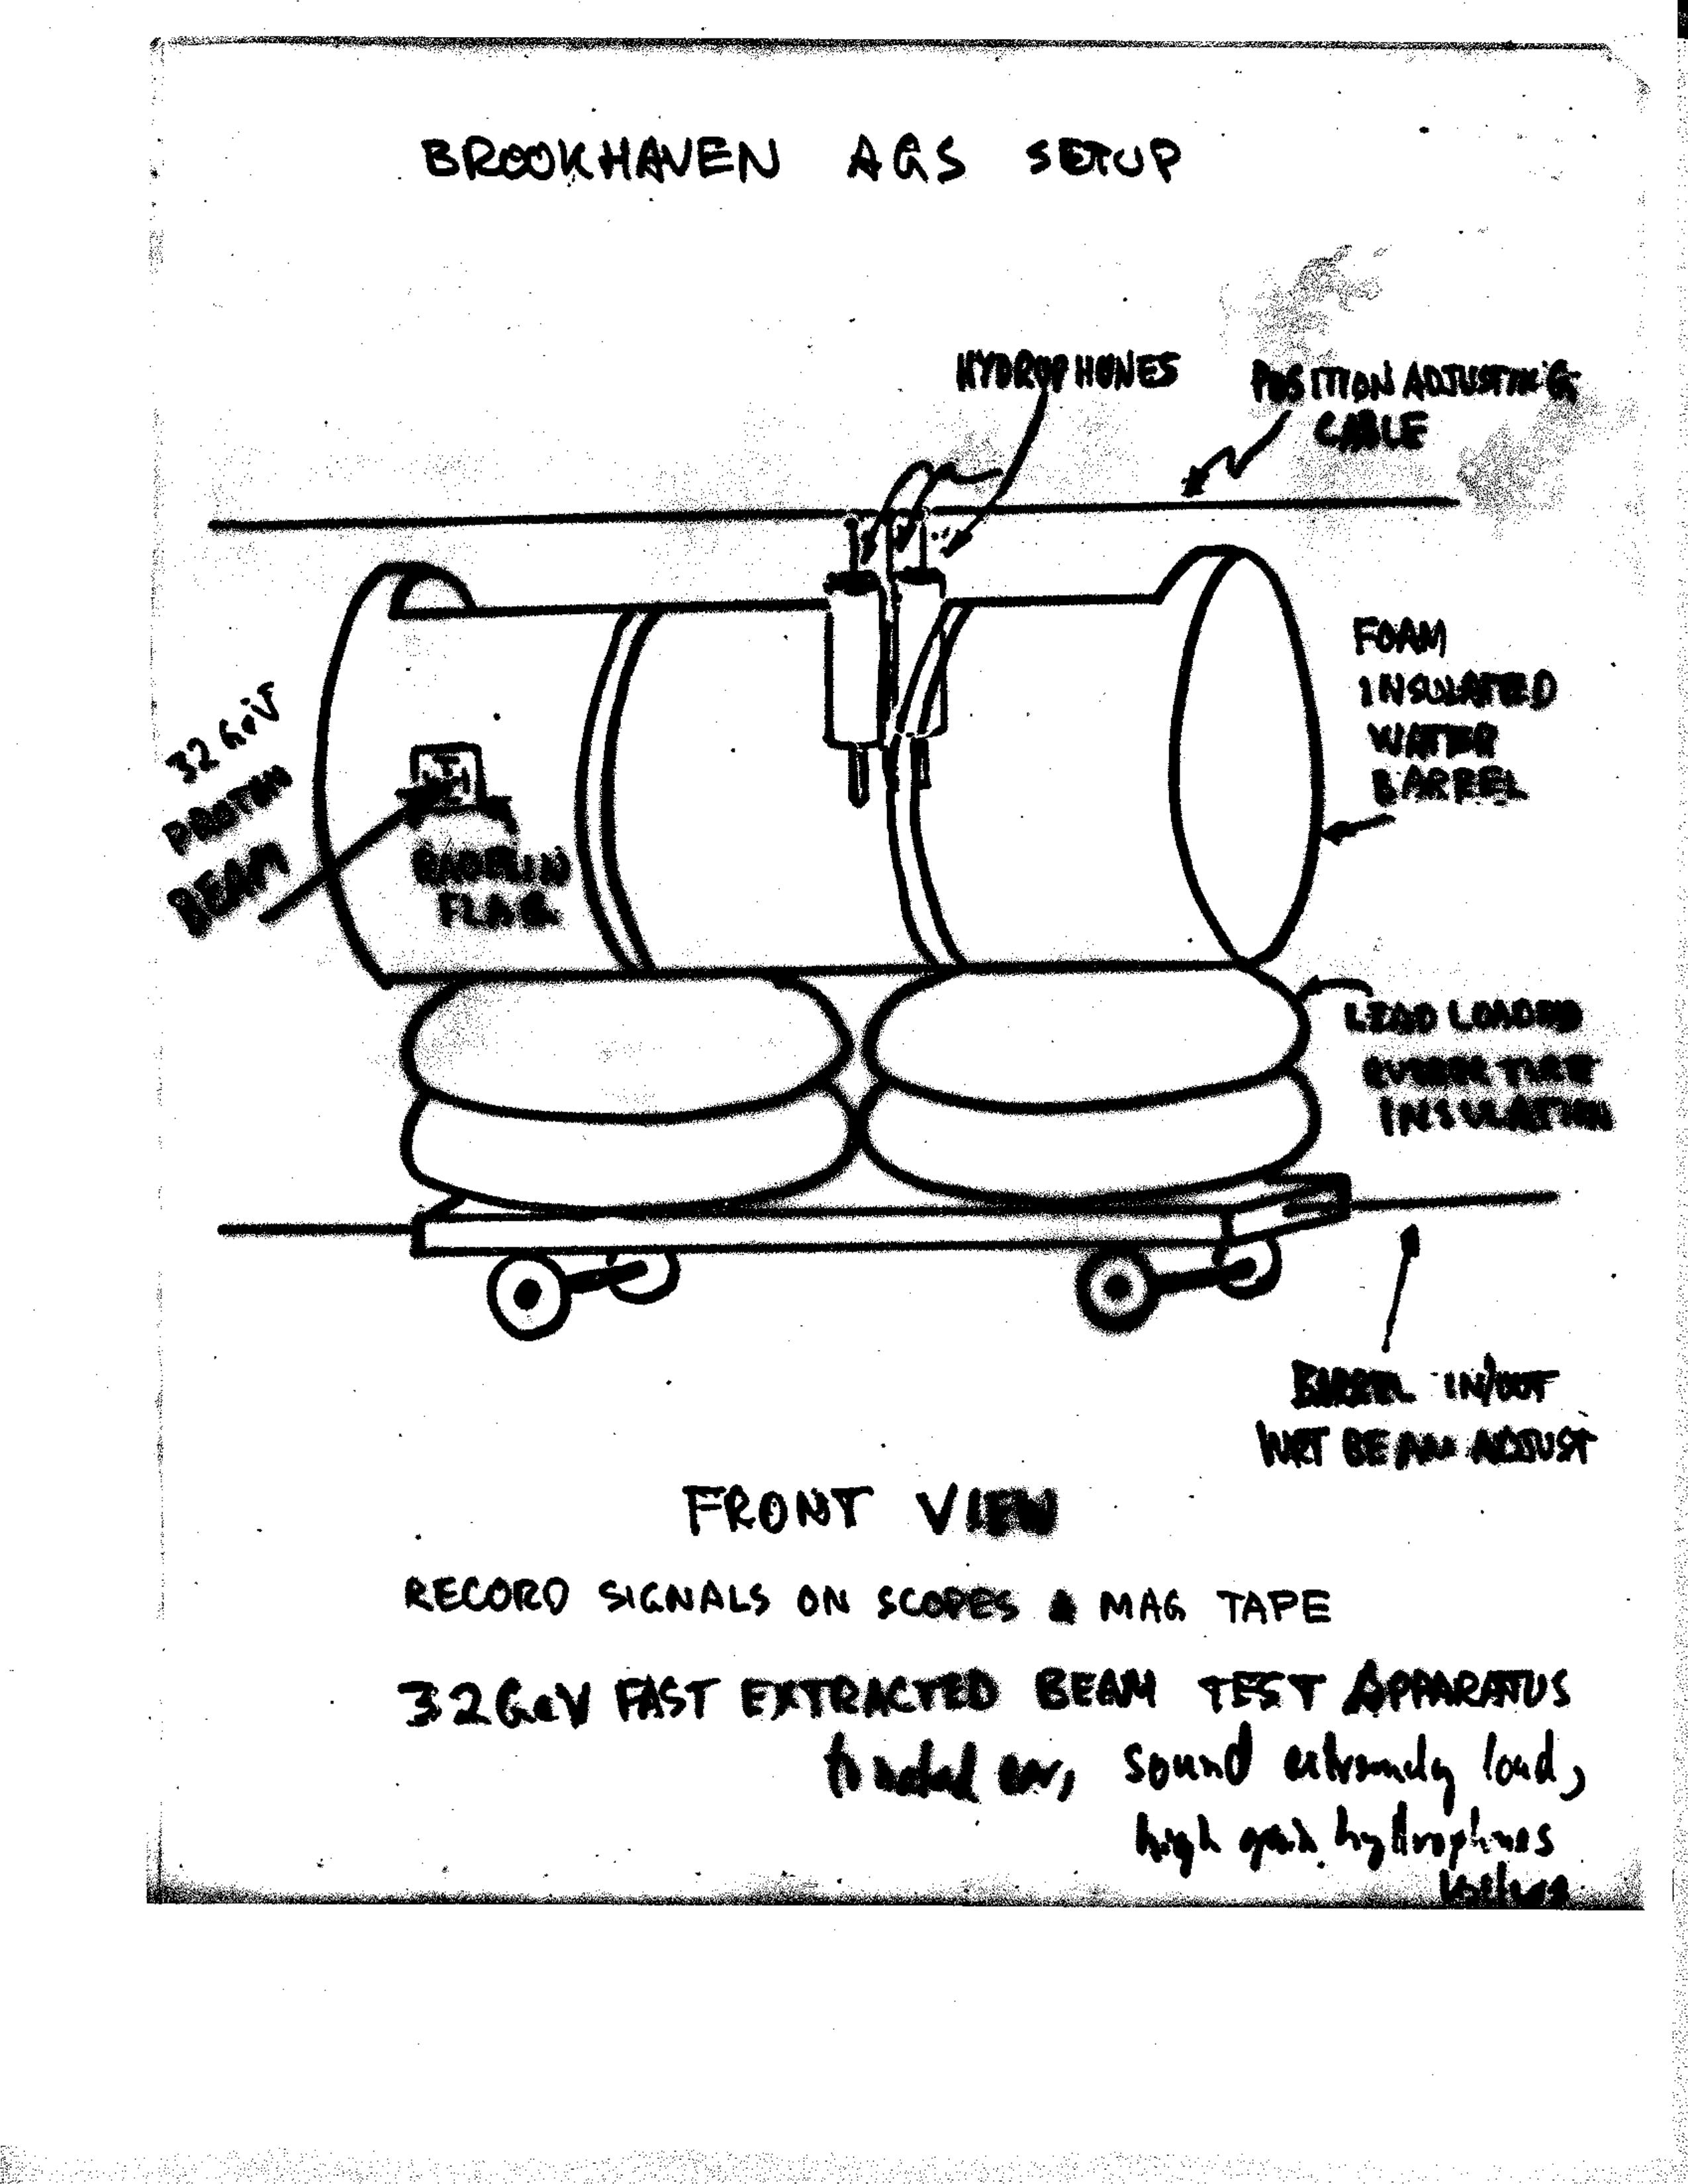 BROOKHAVEN AGS SETUP
HYDROPHONES
POSITION ADJUSTING
CABLE
FOAM
INSULATED
WATER
BARREL
32 GeV
PROTON
BEAM
FLAG
LEAD LOADED
RUBBER TIRE
INSULATION
BARREL IN/OUT
WRT BEAM ADJUST
FRONT VIEW
RECORD SIGNALS ON SCOPES & MAG TAPE
32 GeV FAST EXTRACTED BEAM TEST APPARATUS
to naked ear, sound extremely loud,
high gain hydrophones